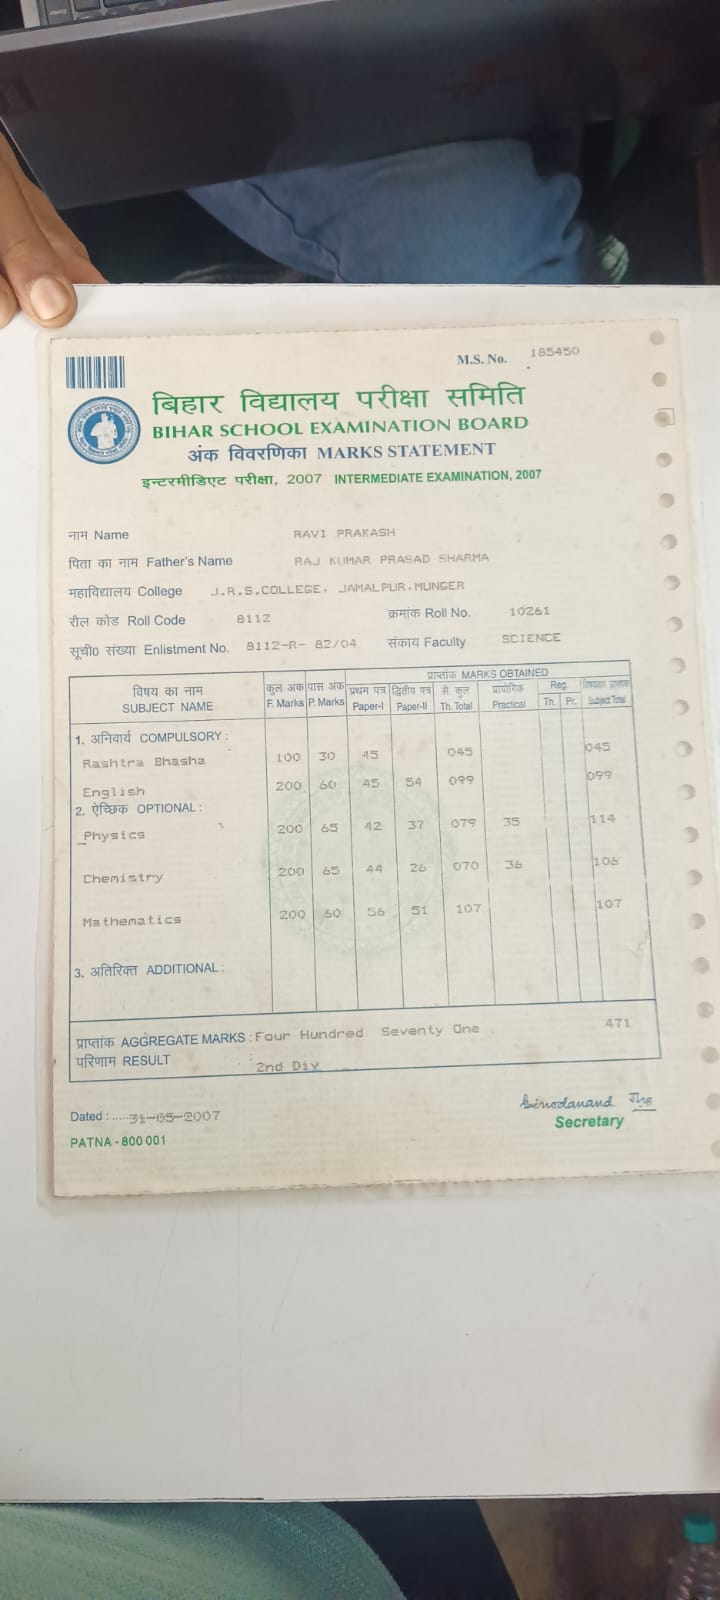 M.S. No. 185450
बिहार विद्यालय परीक्षा समिति
BIHAR SCHOOL EXAMINATION BOARD
अंक विवरणिका MARKS STATEMENT
इन्टरमीडिएट परीक्षा, 2007 INTERMEDIATE EXAMINATION, 2007
नाम Name RAVI PRAKASH
पिता का नाम Father's Name RAJ KUMAR PRASAD SHARMA
महाविद्यालय College J.R.S.COLLEGE, JAMALPUR,MUNGER
रौल कोड Roll Code 8112 क्रमांक Roll No. 10261
सूची0 संख्या Enlistment No. 8112-R- 82/04 संकाय Faculty SCIENCE
प्राप्तांक MARKS OBTAINED
विषय का नाम कुल अंक पास अंक प्रथम पत्र द्वितीय पत्र से कुल प्रायोगिक Reg.
SUBJECT NAME F. Marks P. Marks Paper-I Paper-II Th. Total Practical Th. Pr. Subject Total
1. अनिवार्य COMPULSORY :
Rashtra Bhasha 100 30 45 045 045
English 200 60 45 54 099 099
2. ऐच्छिक OPTIONAL :
Physics 200 65 42 37 079 35 114
Chemistry 200 65 44 26 070 36 106
Mathematics 200 60 56 51 107 107
3. अतिरिक्त ADDITIONAL :
प्राप्तांक AGGREGATE MARKS : Four Hundred Seventy One 471
परिणाम RESULT : 2nd Div
Dated : .....31-05-2007
PATNA - 800 001
Secretary